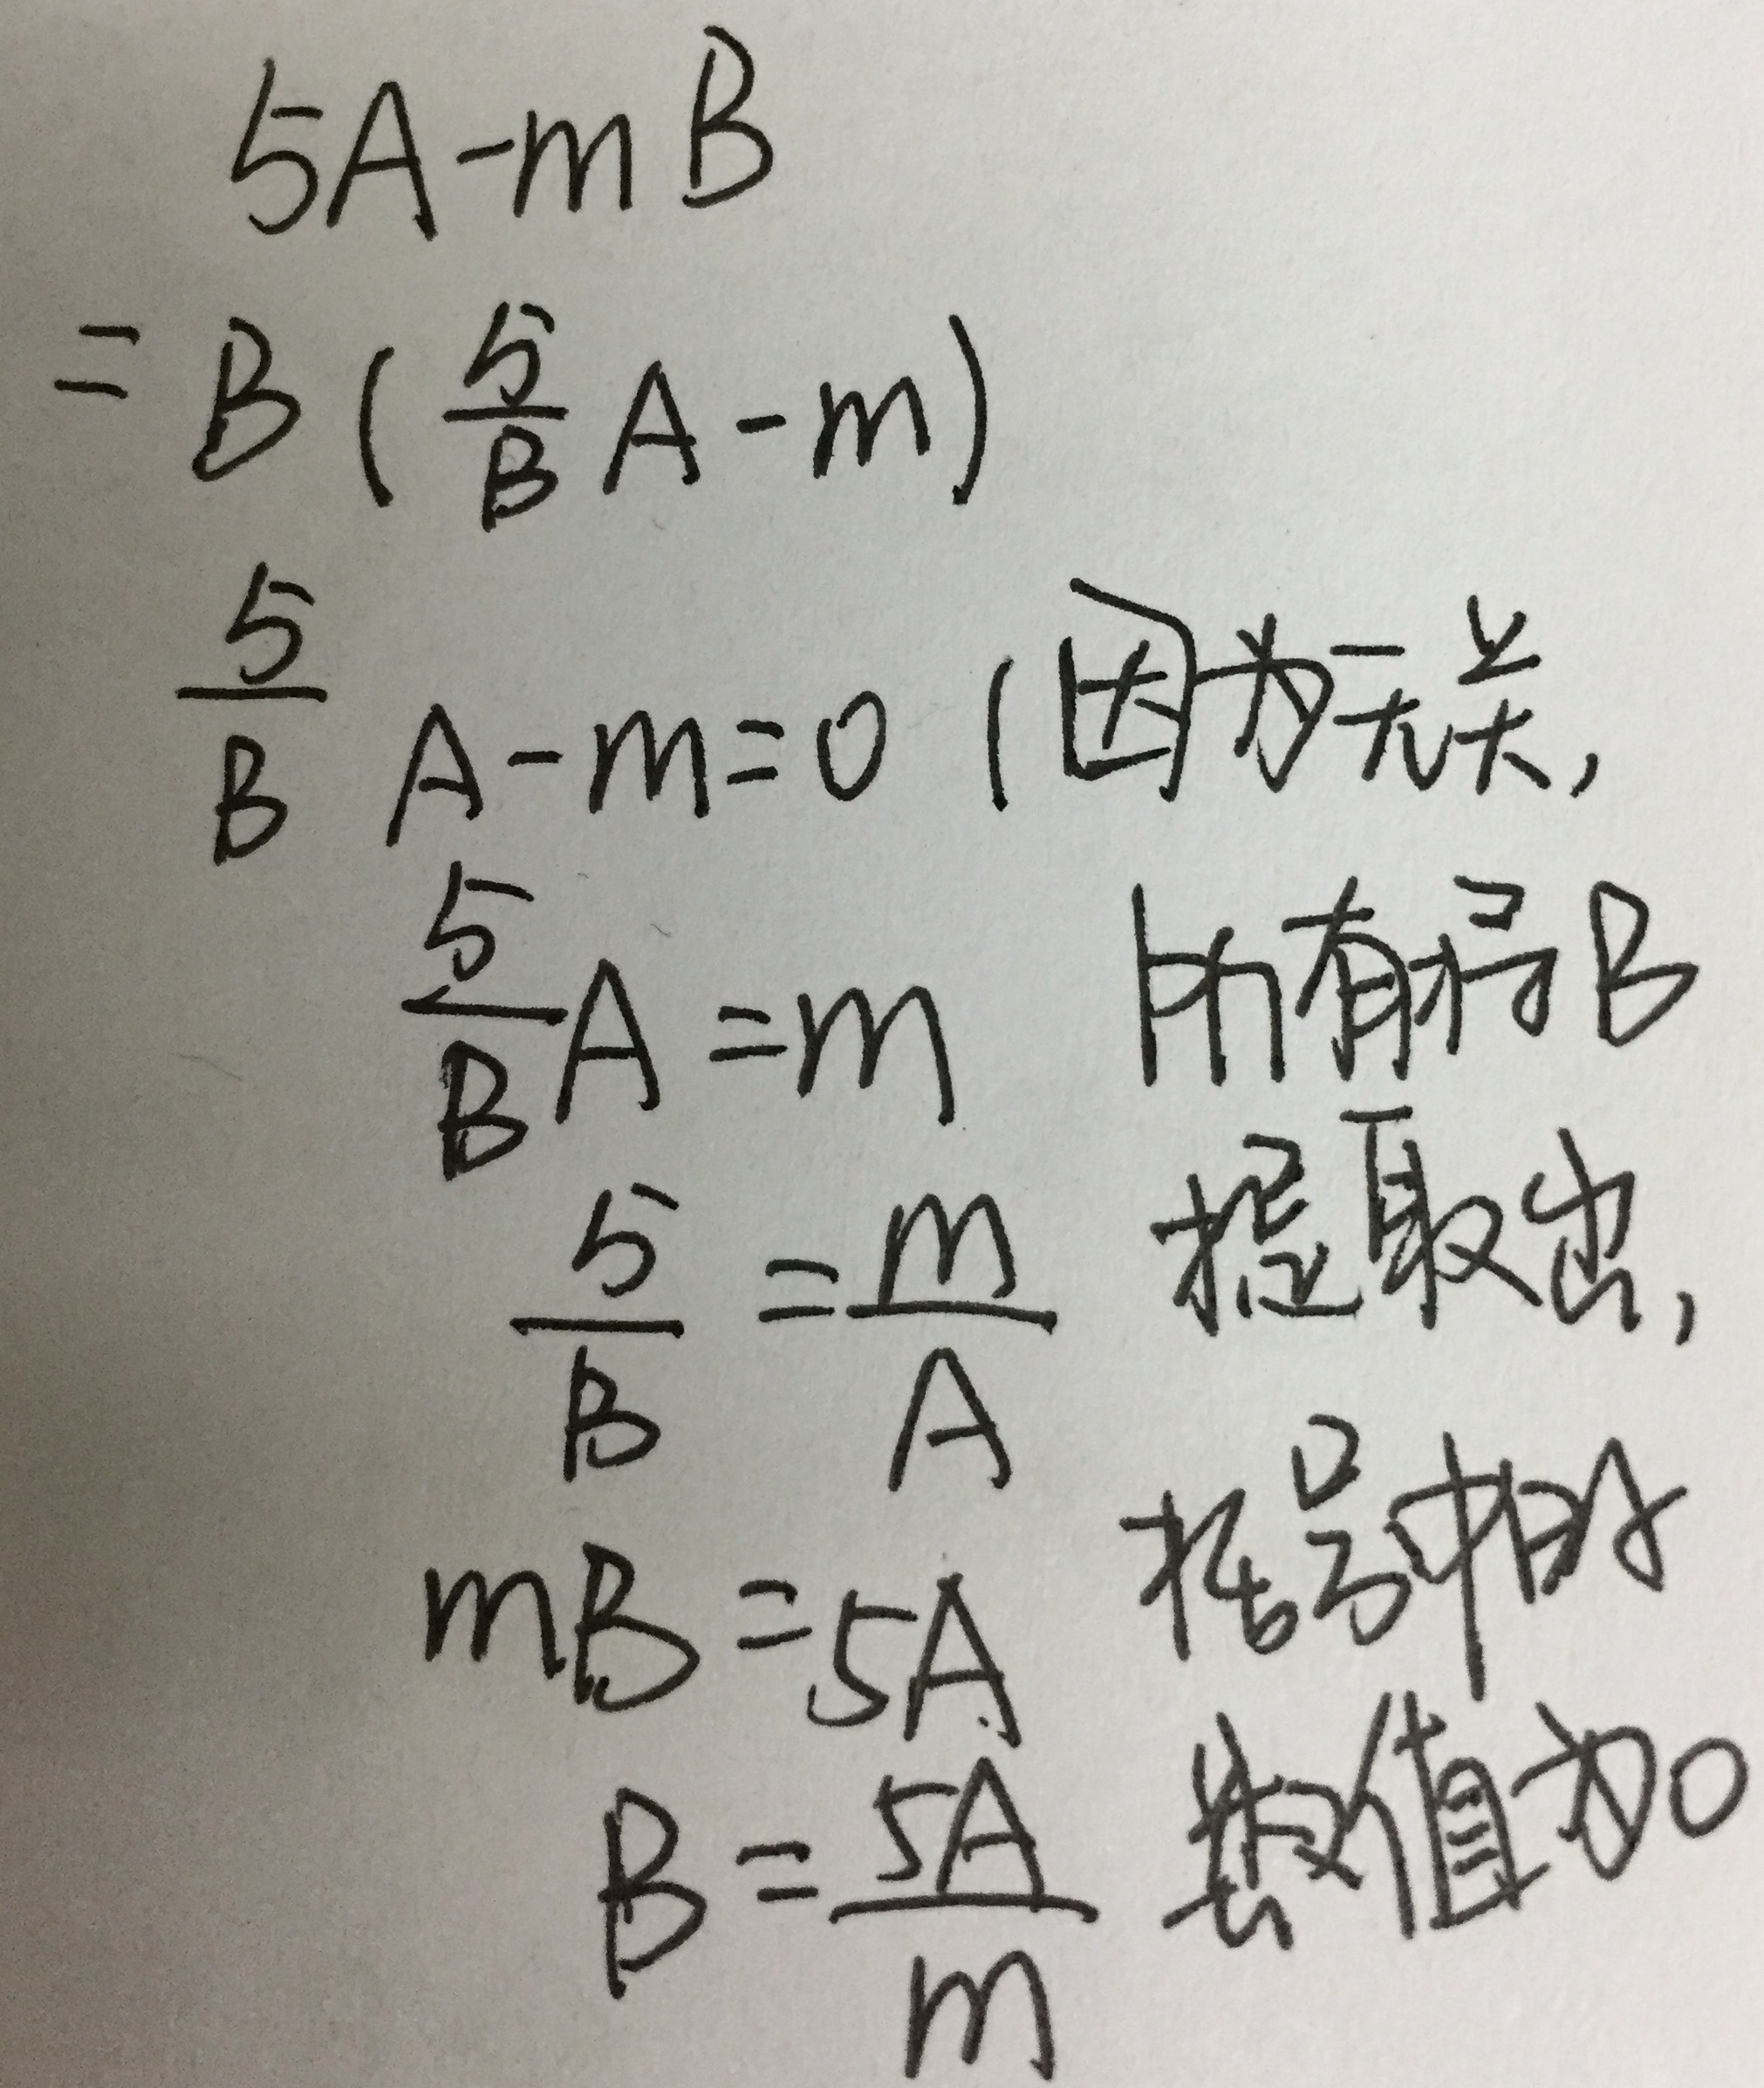 5A-mB
=B(5/B A-m)
5/B A-m=0 (因为无关,
5/B A=m 所有将B
5/B=m/A 提取出,
mB=5A 括号中的
B=5A/m 数值为0